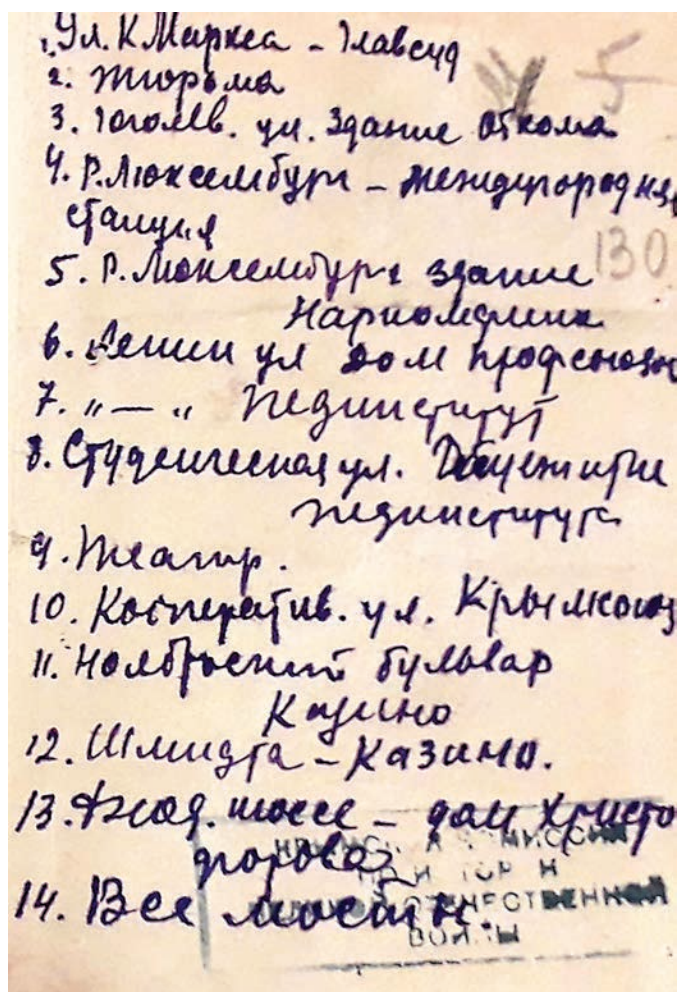 1. Ул. К Маркса – Главсуд
2. Тюрьма
5
3. Гоголев. ул. Здание Обкома
4. Р. Люксембург – междугородняя
станция
130
5. Р. Люксембург здание
Наркомфина
6. Ленин ул дом профсоюзов
7. "—" Пединститут
8. Студенческая ул. Общежитие
пединститута
9. Театр.
10. Кооператив. ул. Крымсоюз
11. Ноябрьский бульвар
Казино
12. Шмидта – Казино.
13. Феод. шоссе – дом Христо
форова
14. Все мосты.
КРЫМСКАЯ КОМИССИЯ
ПО ИСТОРИИ
ВЕЛИКОЙ ОТЕЧЕСТВЕННОЙ
ВОЙНЫ